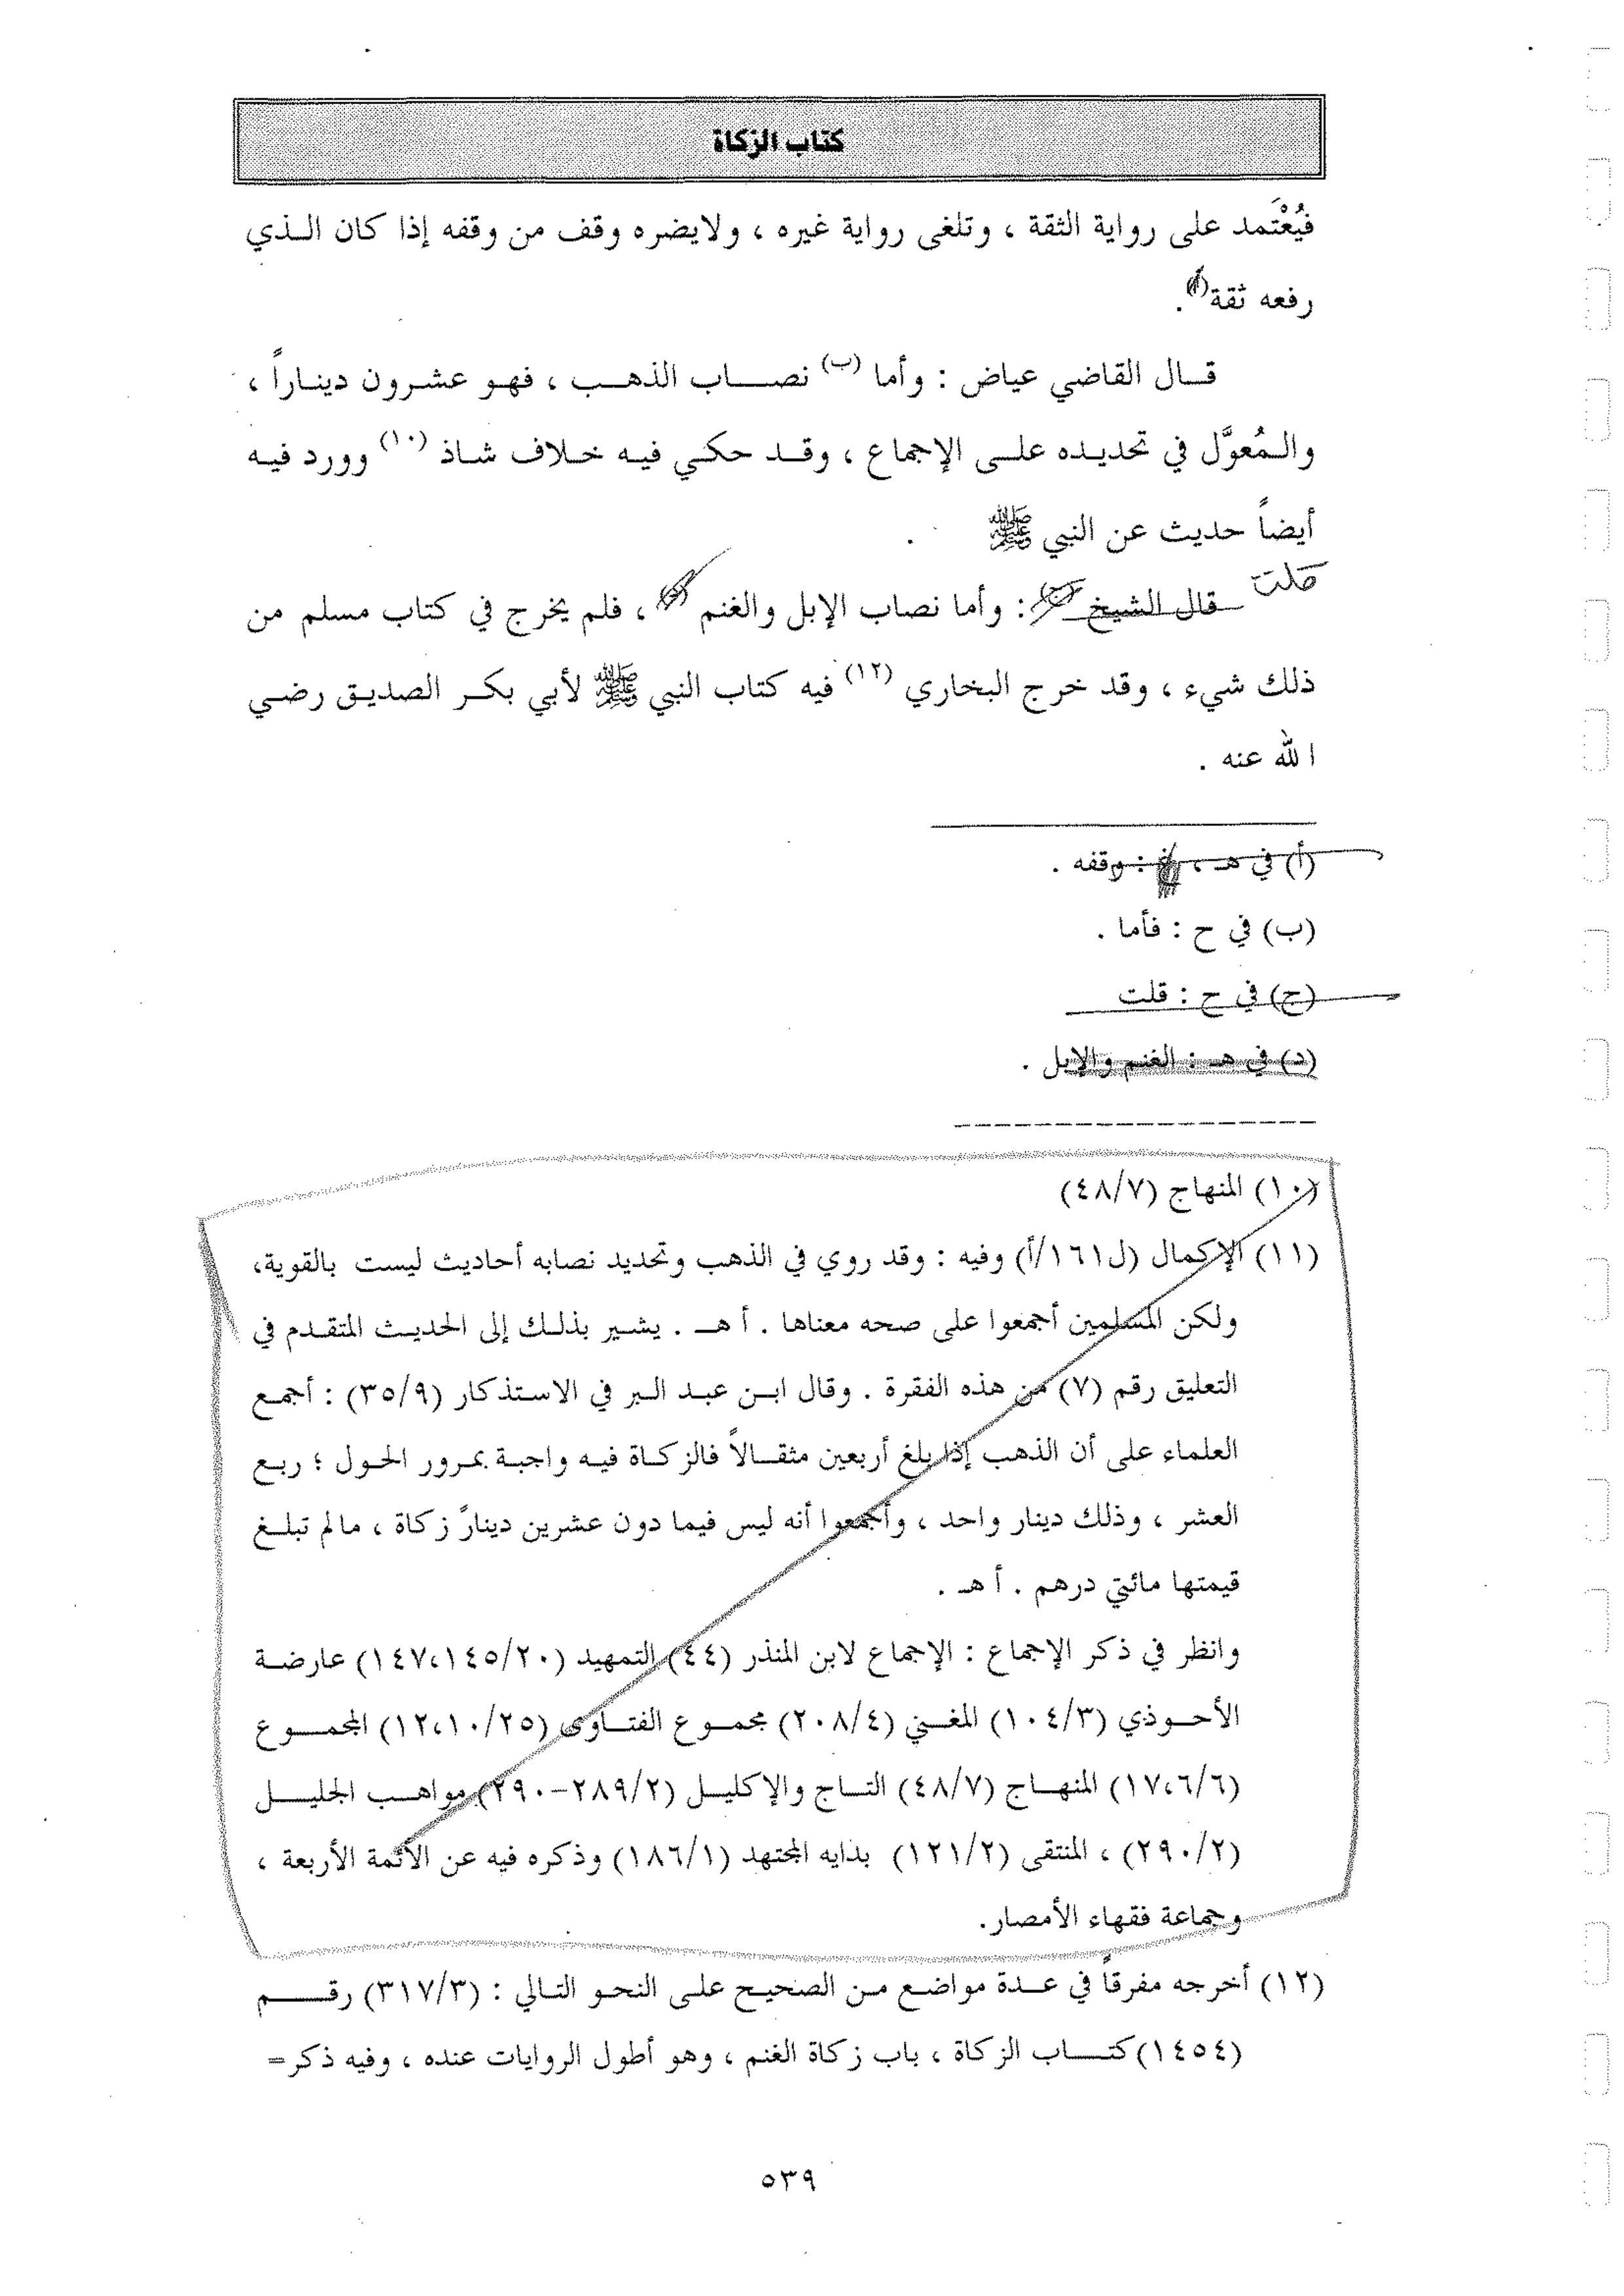 كتاب الزكاة
فيُعْتَمد على رواية الثقة ، وتلغى رواية غيره ، ولايضره وقف من وقفه إذا كان الـذي
رفعه ثقة(أ).
قـال القاضي عياض : وأما (ب) نصـــاب الذهــب ، فهـو عشـرون دينـاراً ،
والـمُعوَّل في تحديـده علـى الإجماع ، وقـد حكـي فيـه خـلاف شـاذ (١٠) وورد فيـه
أيضاً حديث عن النبي ﷺ .
قلت
قال الشيخ : وأما نصاب الإبل والغنم ، فلم يخرج في كتاب مسلم من
ذلك شيء ، وقد خرج البخاري (١٢) فيه كتاب النبي ﷺ لأبي بكـر الصديـق رضـي
الله عنه .
(أ) في هـ ، : وقفه .
(ب) في ح : فأما .
(ج) في ح : قلت
(د) في هـ : الغنم والإبل .
(١٠) المنهاج (٤٨/٧)
(١١) الإكمال (ل١٦١/أ) وفيه : وقد روي في الذهب وتحديد نصابه أحاديث ليست بالقوية،
ولكن المسلمين أجمعوا على صحه معناها . أ هـ . يشـير بذلـك إلى الحديـث المتقـدم في
التعليق رقم (٧) من هذه الفقرة . وقال ابـن عبـد الـبر في الاستذكار (٣٥/٩) : أجمـع
العلماء على أن الذهب إذا بلغ أربعين مثقـالاً فالزكـاة فيـه واجبـة بمـرور الحـول ؛ ربـع
العشر ، وذلك دينار واحد ، وأجمعوا أنه ليس فيما دون عشرين دينارً زكاة ، مالم تبلـغ
قيمتها مائتي درهم . أ هـ .
وانظر في ذكر الإجماع : الإجماع لابن المنذر (٤٤) التمهيد (١٤٧،١٤٥/٢٠) عارضـة
الأحـوذي (١٠٤/٣) المغـني (٢٠٨/٤) مجمـوع الفتـاوى (١٢،١٠/٢٥) المجمـــوع
(١٧،٦/٦) المنهـاج (٤٨/٧) التـاج والإكليـل (٢٨٩/٢-٢٩٠) مواهـب الجليـــل
(٢٩٠/٢) ، المنتقى (١٢١/٢) بدايه المجتهد (١٨٦/١) وذكره فيه عن الأئمة الأربعة ،
وجماعة فقهاء الأمصار.
(١٢) أخرجه مفرقاً في عـدة مواضـع مـن الصحيـح علـى النحـو التـالي : (٣١٧/٣) رقــــم
(١٤٥٤)كتـــاب الزكاة ، باب زكاة الغنم ، وهو أطول الروايات عنده ، وفيه ذكر=
٥٣٩